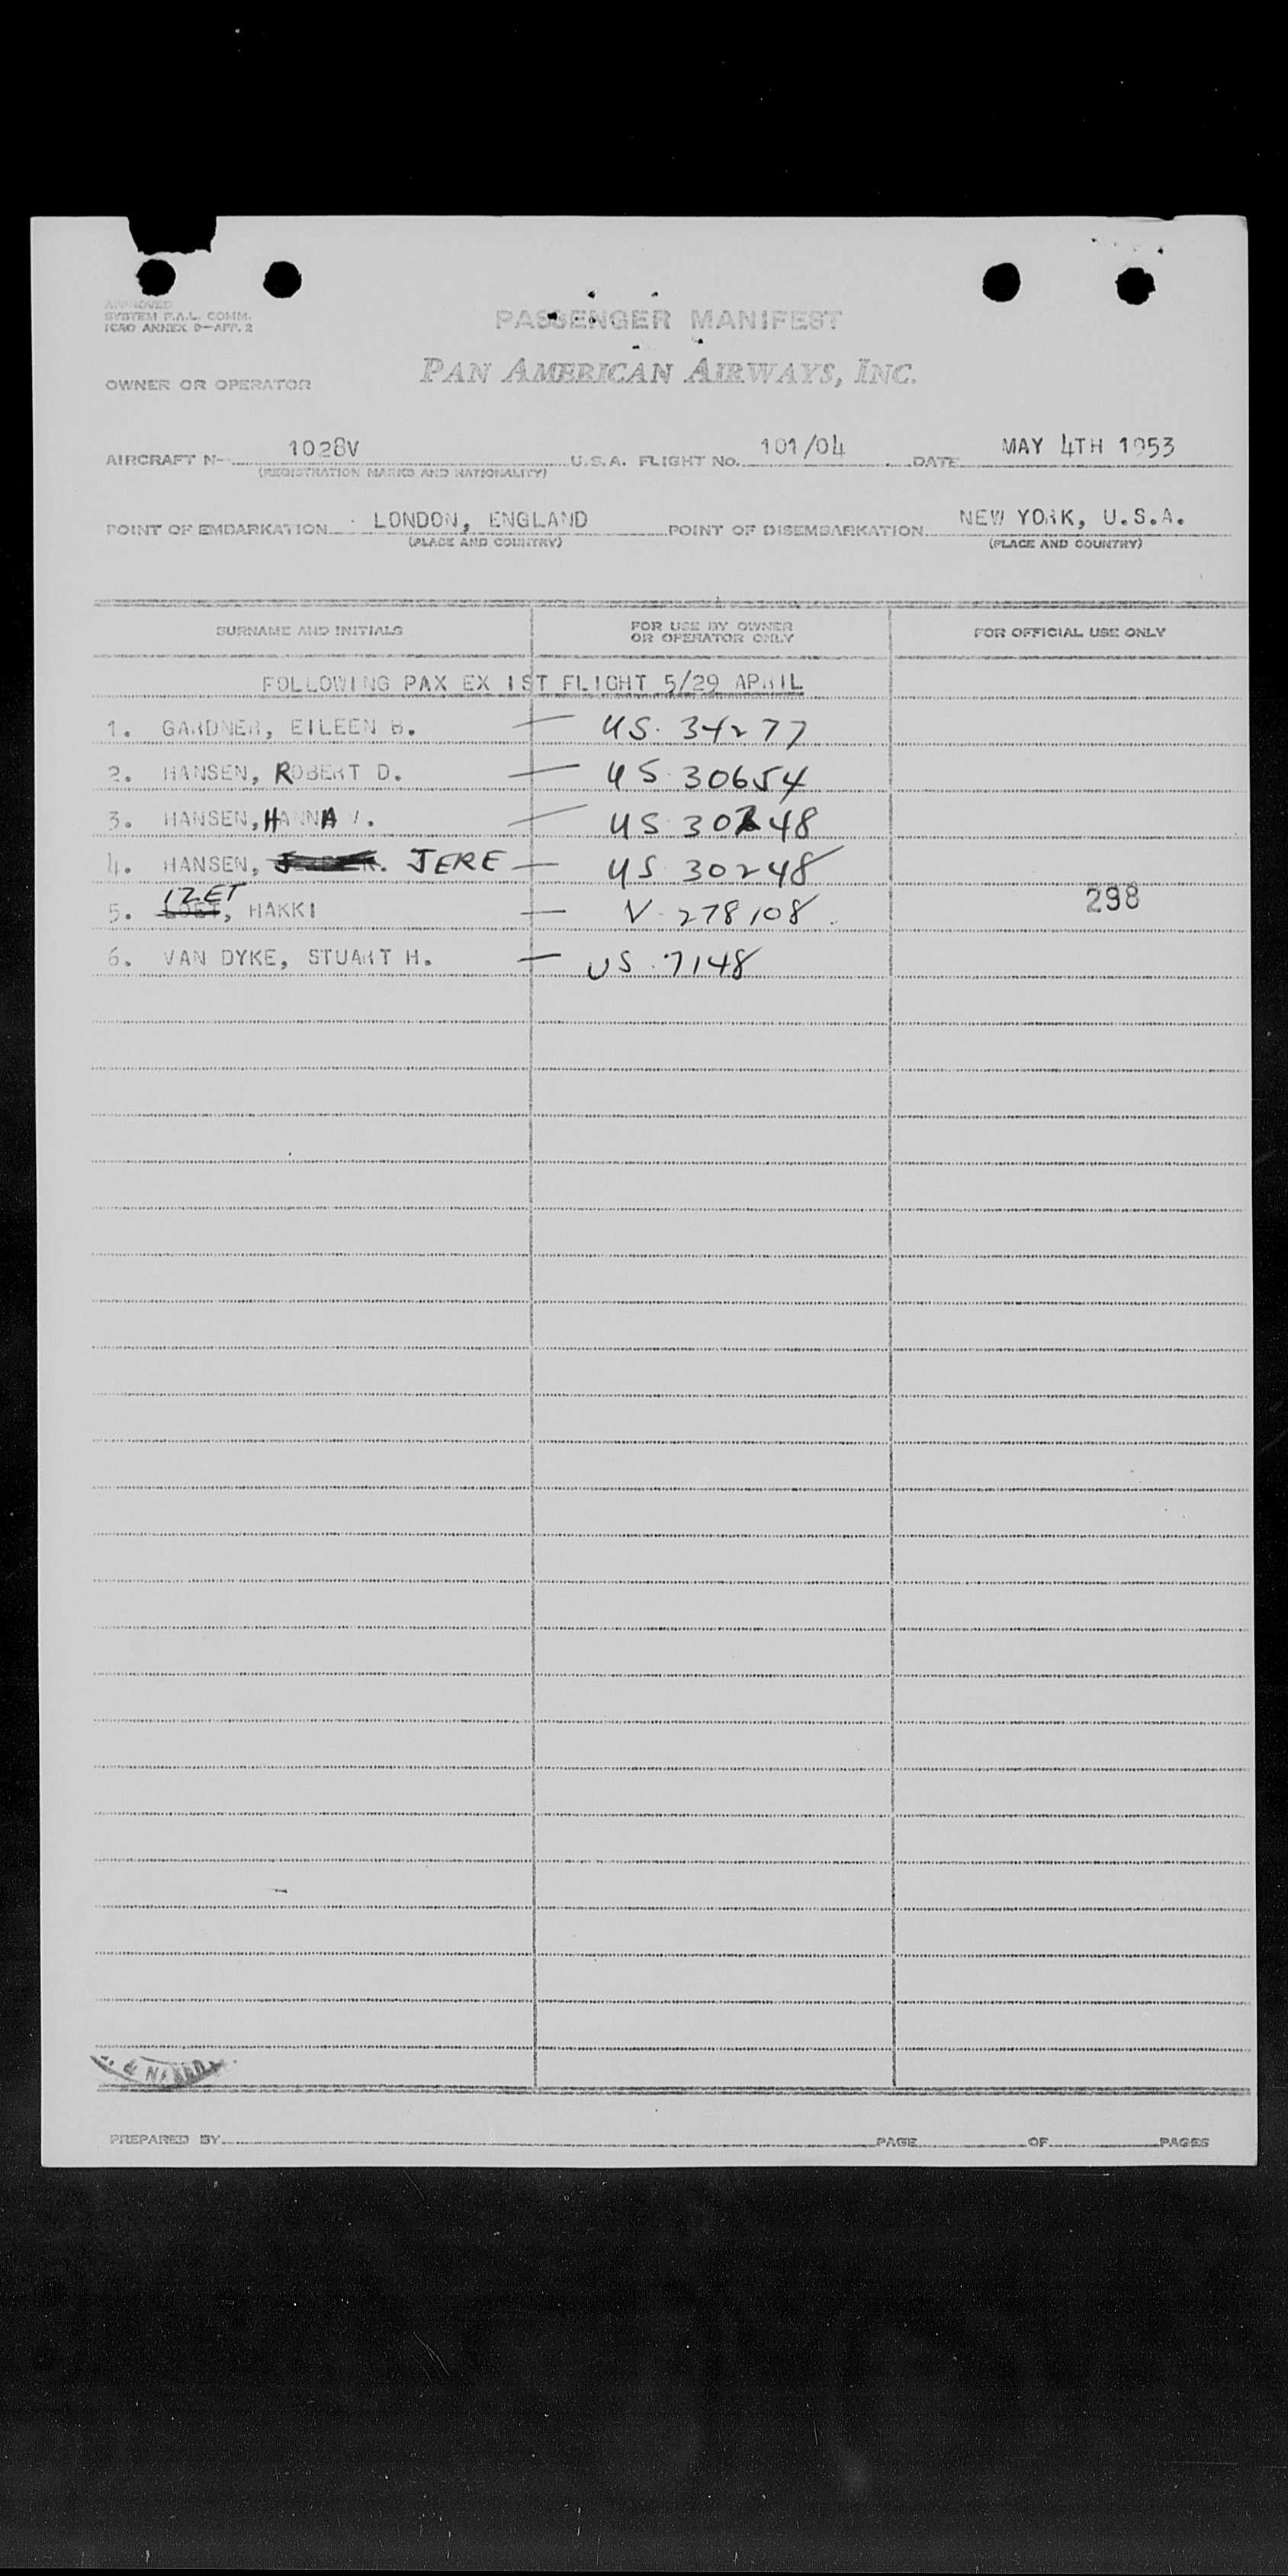 APPROVED
SYSTEM P.A.L. COMM.
ICAO ANNEX 9-APP. 2
PASSENGER MANIFEST
OWNER OR OPERATOR PAN AMERICAN AIRWAYS, INC.
AIRCRAFT N- 1028V U.S.A. FLIGHT NO. 101/04 DATE MAY 4TH 1953
(REGISTRATION MARKS AND NATIONALITY)
POINT OF EMBARKATION LONDON, ENGLAND POINT OF DISEMBARKATION NEW YORK, U.S.A.
(PLACE AND COUNTRY) (PLACE AND COUNTRY)
SURNAME AND INITIALS FOR USE BY OWNER OR OPERATOR ONLY FOR OFFICIAL USE ONLY
FOLLOWING PAX EX IST FLIGHT 5/29 APRIL
1. GARDNER, EILEEN B. — US. 34277
2. HANSEN, ROBERT D. — US 30654
3. HANSEN, HANNA V. — US 30248
4. HANSEN, JERE — US 30248
IZET
5. , HAKKI — V. 278108. 298
6. VAN DYKE, STUART H. — US. 7148
PREPARED BY PAGE OF PAGES